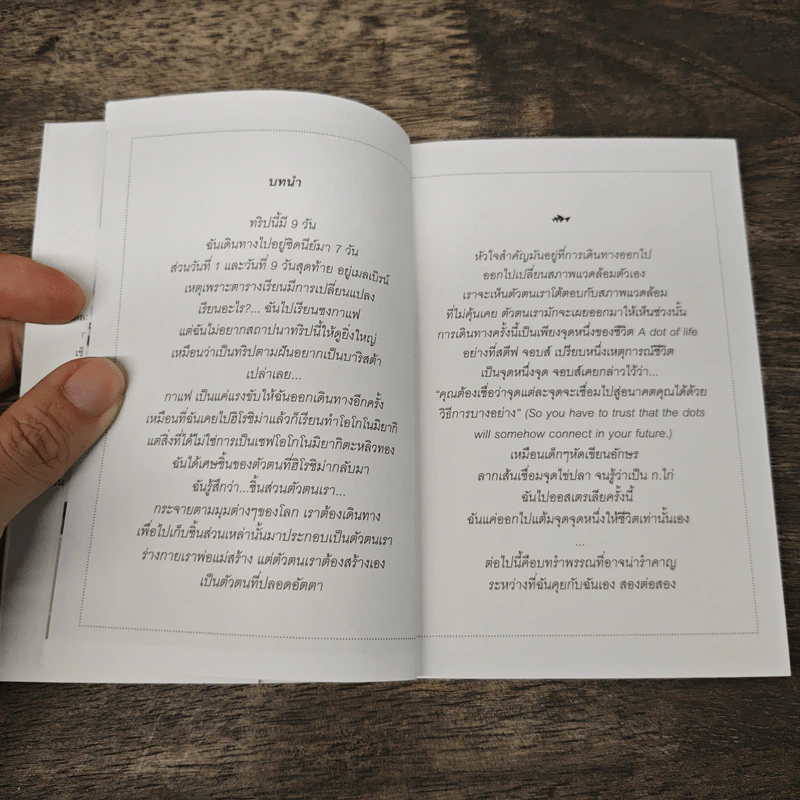 บทนำ
ทริปนี้มี 9 วัน
ฉันเดินทางไปอยู่ซิดนีย์มา 7 วัน
ส่วนวันที่ 1 และวันที่ 9 วันสุดท้าย อยู่เมลเบิรน์
เหตุเพราะตารางเรียนมีการเปลี่ยนแปลง
เรียนอะไร?... ฉันไปเรียนชงกาแฟ
แต่ฉันไม่อยากสถาปนาทริปนี้ให้ดูยิ่งใหญ่
เหมือนว่าเป็นทริปตามฝันอยากเป็นบาริสต้า
เปล่าเลย...
กาแฟ เป็นแค่แรงขับให้ฉันออกเดินทางอีกครั้ง
เหมือนที่ฉันเคยไปฮิโรชิม่าแล้วก็เรียนทำโอโกโนมิยากิ
แต่สิ่งที่ได้ไม่ใช่การเป็นเชฟโอโกโนมิยากิตะหลิวทอง
ฉันได้เศษชิ้นของตัวตนที่ฮิโรชิม่ากลับมา
ฉันรู้สึกว่า...ชิ้นส่วนตัวตนเรา...
กระจายตามมุมต่างๆของโลก เราต้องเดินทาง
เพื่อไปเก็บชิ้นส่วนเหล่านั้นมาประกอบเป็นตัวตนเรา
ร่างกายเราพ่อแม่สร้าง แต่ตัวตนเราต้องสร้างเอง
เป็นตัวตนที่ปลอดอัตตา
หัวใจสำคัญมันอยู่ที่การเดินทางออกไป
ออกไปเปลี่ยนสภาพแวดล้อมตัวเอง
เราจะเห็นตัวตนเราโต้ตอบกับสภาพแวดล้อม
ที่ไม่คุ้นเคย ตัวตนเรามักจะเผยออกมาให้เห็นช่วงนั้น
การเดินทางครั้งนี้เป็นเพียงจุดหนึ่งของชีวิต A dot of life
อย่างที่สตีฟ จอบส์ เปรียบหนึ่งเหตุการณ์ชีวิต
เป็นจุดหนึ่งจุด จอบส์เคยกล่าวไว้ว่า...
“คุณต้องเชื่อว่าจุดแต่ละจุดจะเชื่อมไปสู่อนาคตคุณได้ด้วย
วิธีการบางอย่าง” (So you have to trust that the dots
will somehow connect in your future.)
เหมือนเด็กๆหัดเขียนอักษร
ลากเส้นเชื่อมจุดไข่ปลา จนรู้ว่าเป็น ก.ไก่
ฉันไปออสเตรเลียครั้งนี้
ฉันแค่ออกไปแต้มจุดจุดหนึ่งให้ชีวิตเท่านั้นเอง
...
ต่อไปนี้คือบทรำพรรณที่อาจน่ารำคาญ
ระหว่างที่ฉันคุยกับฉันเอง สองต่อสอง